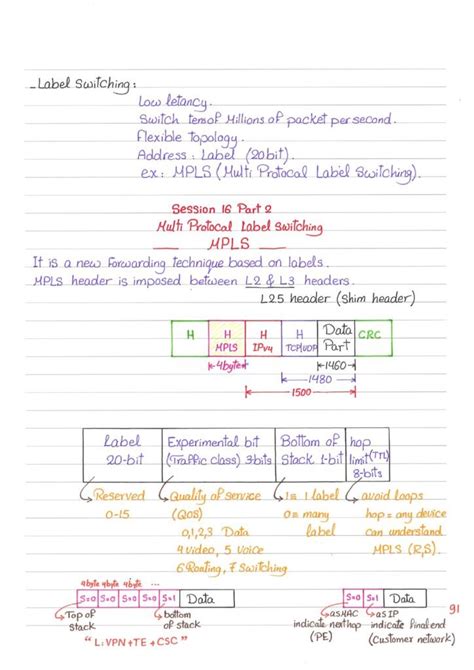 _Label Switching:
Low letancy.
Switch tens of Millions of packet per second.
Flexible topology.
Address: Label (20bit).
ex: MPLS (Multi Protocal Label Switching).
Session 16 Part 2
Multi Protocal Label Switching
MPLS
It is a new Forwarding technique based on labels.
MPLS header is imposed between L2 & L3 headers.
L2.5 header (Shim header)
H H MPLS H IPv4 H TCP/UDP Data Part CRC
4byte 1460
1480
1500
Label 20-bit Experimental bit (Traffic class) 3bits Bottom of Stack 1-bit hop limit (TTL) 8-bits
Reserved 0-15
Quality of service (QOS)
0,1,2,3 Data
4 video, 5 Voice
6 Routing, 7 Switching
1 = 1 label
0 = many label
avoid loops
hop = any device can understand MPLS (R,S).
4byte 4byte 4byte ...
S=0 S=0 S=0 S=0 S=1 Data
Top of stack
bottom of stack
" L: VPN+TE+CSC "
S=0 S=1 Data
as MAC indicate next hop (PE)
as IP indicate final end (Customer network)
91